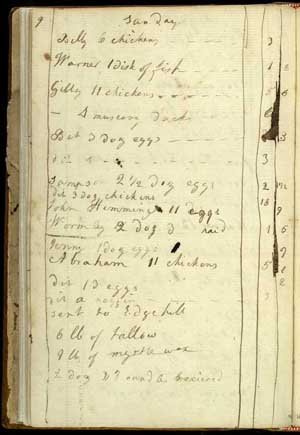 9 Sunday
Billy 6 chickens 3
Warner 1 dish of fish 1
Gilly 11 chickens 5 6
4 muscovy ducks 6
Bet 3 dog eggs 3
dit 3
Sampson 2 1/2 dog eggs 2
dit 3 dog chickens 18
John Hemmings 11 eggs
Wormley 2 dog 3 paid
Jenny 1 dog eggs 1
Abraham 11 chickens 5
dit 13 eggs
dit a
sent to Edgehill
6 lb of tallow
8 lb of myrtle wax
2 dog received